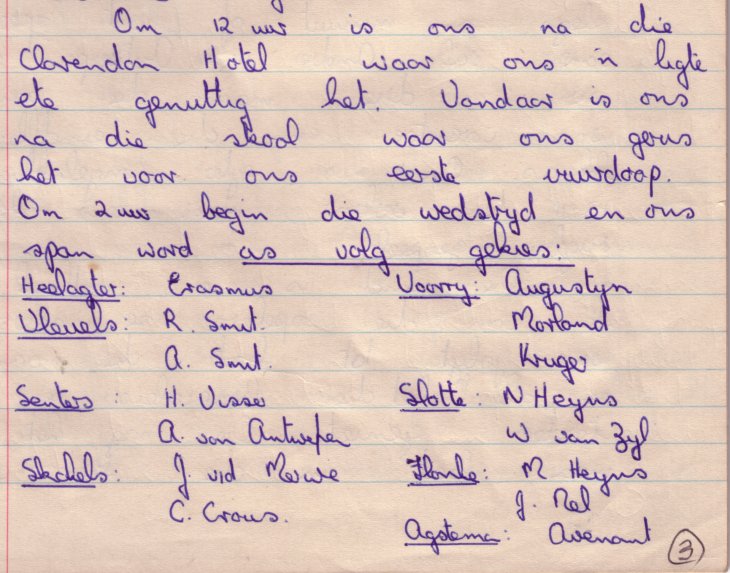 Om 12 uur is ons na die
Clarendon Hotel waar ons 'n ligte
ete genuttig het. Vandaar is ons
na die skool waar ons gerus
het voor ons eerste vuurdoop.
Om 2 uur begin die wedstryd en ons
span word as volg gekies:
Heelagter: Erasmus Voorry: Augustyn
Vleuels: R. Smit. Morland
A. Smit. Kruger
Senters: H. Visser Slotte: N Heyns
A. van Antwerpen W van Zyl
Skakels: J. vid Merwe Flanke: M. Heyns
C. Crous. J. Nel
Agsteman: Avenant
3